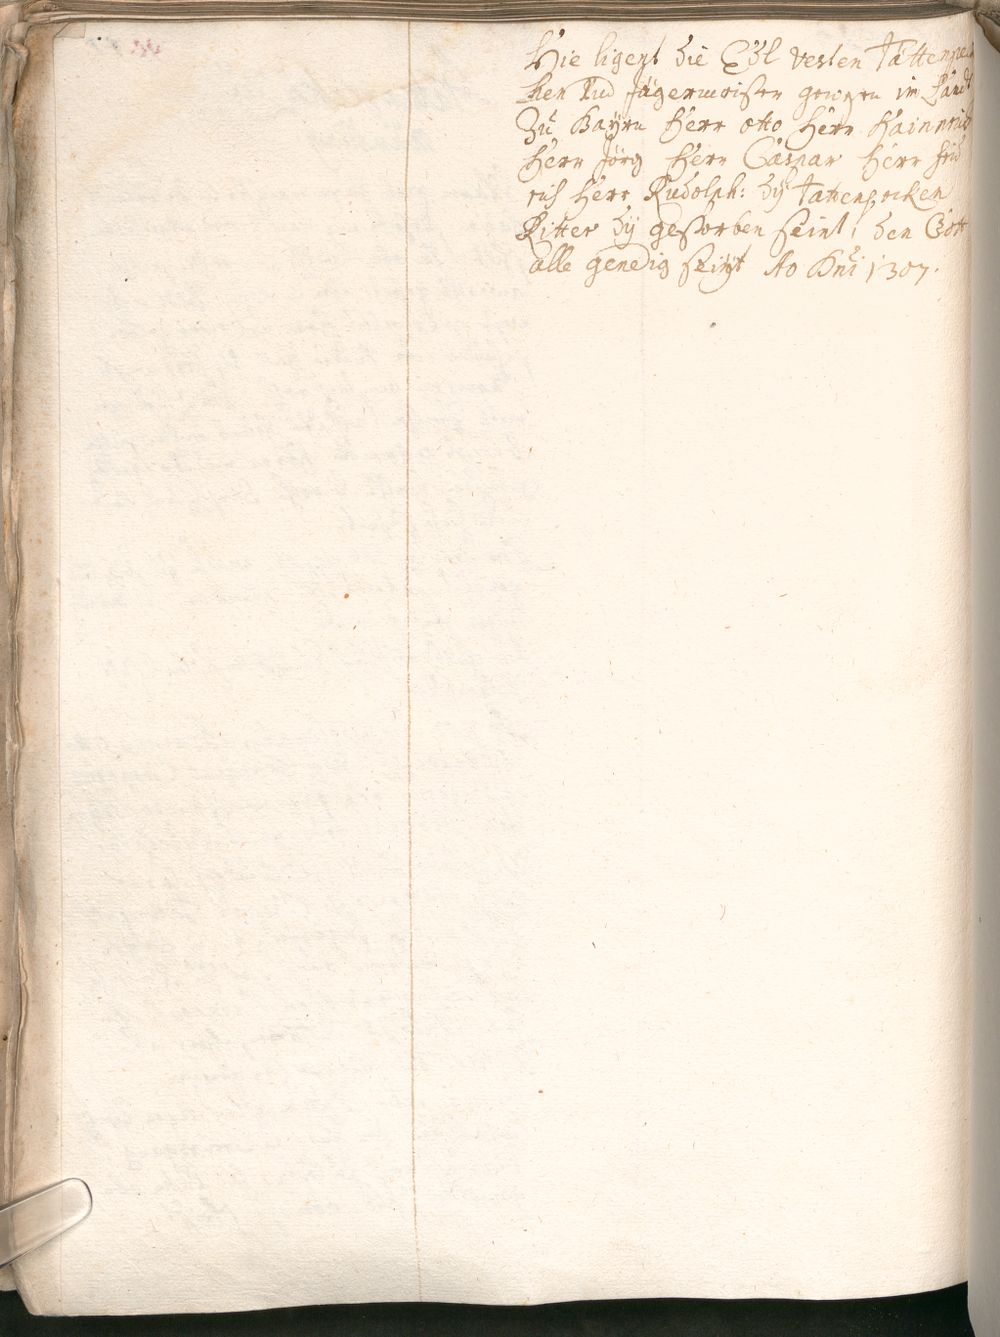 Hie ligent die Edl vesten Tattenpeck
hen Und Jägermeister gewesen in Landt
Zu Bayrn Herr otto Herr Hainrich
Herr Jörg Herr Caspar Herr frid
rich Herr Rudolph: dÿ Tattenpecken
Ritter dÿ gestorben seint, den Gott
alle genedig seiyt Ao Dni 1307.